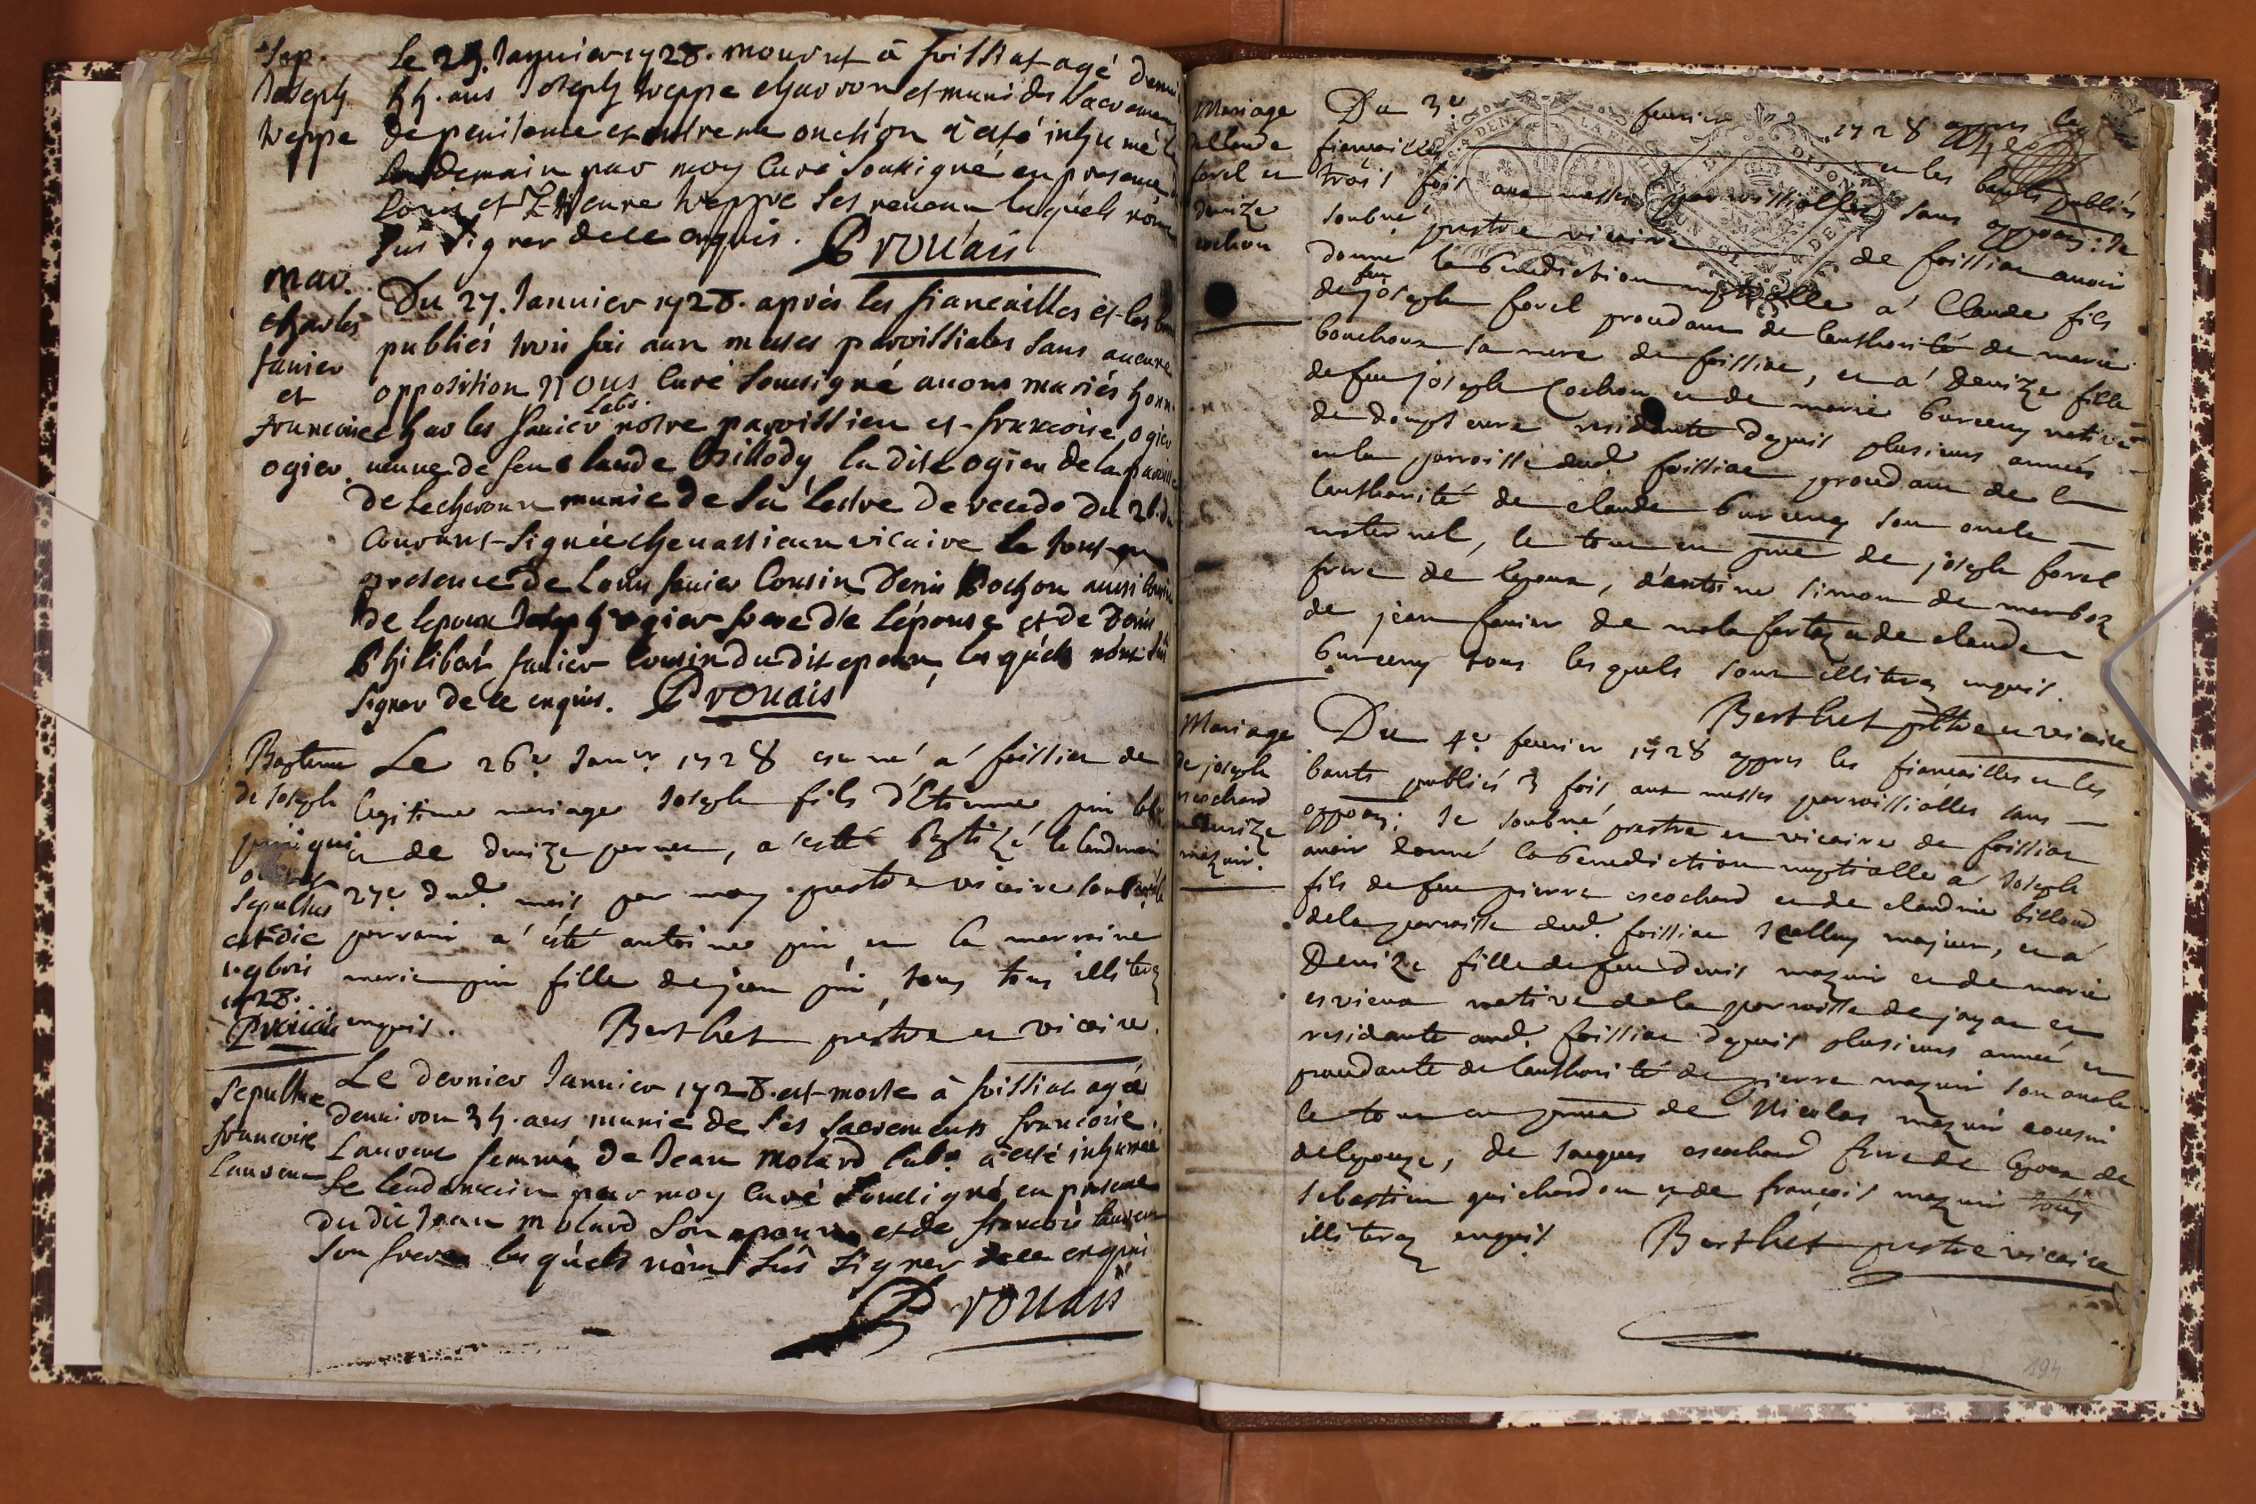 Sep.
Joseph
Weppe
Le 25. Januier 1728. mourut à foissiat agé
55. ans Joseph Weppe charron et muni des Sacremens
de penitence et extreme onction à esté inhumé
lendemain par moy Curé Soussigné en presence
Louis et Etienne Weppe ses neueux lesquels nont
sus signer de ce enquis. Prouais
Mar.
charles
fanier
et
francoise
ogier
Du 27. Januier 1728. aprés les fiancailles et les
publiés trois foi aux messes parroissiales sans aucune
opposition Nous Curé soussigné auons mariés honn.
charles fanier labr. notre parroissien et francoise ogier
ueuue de feu claude Billody la dite ogier de la
de Lecheroux munie de la lettre de recedo du 26. du
Courant signée cheuassieux vicaire le tout en
presence de Louis fanier Cousin Denis Cochon aussi Cousin
de lepoux Joseph ogier frere de lépouse et de Denis
Philibert fanier Cousin du dit epoux, lesquels nont sus
signer de ce enquis. Prouais
Bapteme
de Joseph
pin qui
Sepulture
est dic
1728.
Prouais
Le 26e Janer 1728 est né a foissiat de
legitime mariage Joseph fils d'Etienne pin
et de denize pernet, a esté baptizé le lendemain
27e dud. mois par moy prestre vicaire
parrain a été antoine pin et la marraine
marie pin fille de jean pin, tous tous illiterez
enquis. Berthet prestre et vicaire.
Sepulture
francoise
Laurent
Le dernier Januier 1728. est morte à foissiat agée
denuiron 35. ans munie de ses sacremens francoise
Laurent femme de Jean Molard labr. à esté inhumée
le lendemain par moy Curé Soussigné en presence
du dit Jean Molard son epoux et de francois laurent
son frere lesquels nont sûs signer de ce enquis
Prouais
Mariage
de Claude
forel et
denize
cochon
Du 3e feurier 1728 appres les
fiancailles et les bants publiés
trois fois aux messes parroissialles sans oppoon: Je
soubné prestre vicaire de foissiat auoir
donné la benediction nuptialle a Claude fils
de feu joseph forel procedant de lauthorité de marie
bouchoux sa mere de foissiat, et a denize fille
de feu joseph Cochon et de marie burceny native
de dompseure residante depuis plusieurs années
en la parroisse dud foissiat procedant de l
lauthorité de claude burceny son oncle
maternel, le tout en pnce de joseph forel
frere de lepoux, d'antoine simon de marboz
de jean fanier de malafertay et de claude
burceny tous lesquels sont illiterez enquis.
Berthet pbtre et vicaire
Mariage
de joseph
escochard
et denize
mazuir.
Du 4e feurier 1728 appres les fiancailles et les
bants publiés 3 fois aux messes parroissialles sans
oppoon: Je soubné prestre et vicaire de foissiat
auoir donné la benediction nuptialle a Joseph
fils de feu pierre escochard et de claudine billoud
de la parroisse dud. foissiat majeur, et a
Denize fille de feu denis mazuir et de marie
esvieux native de la parroisse de jayat et
residante aud. foissiat depuis plusieurs année et
procedante de lauthorité de pierre mazuir son oncle
le tout en pnce de Nicolas mazuir cousin
de lepouze, de Jacques escochard frere de lepoux de
sebastien guichardon et de françois mazuir tous
illiterez enquis Berthet prestre vicaire
194